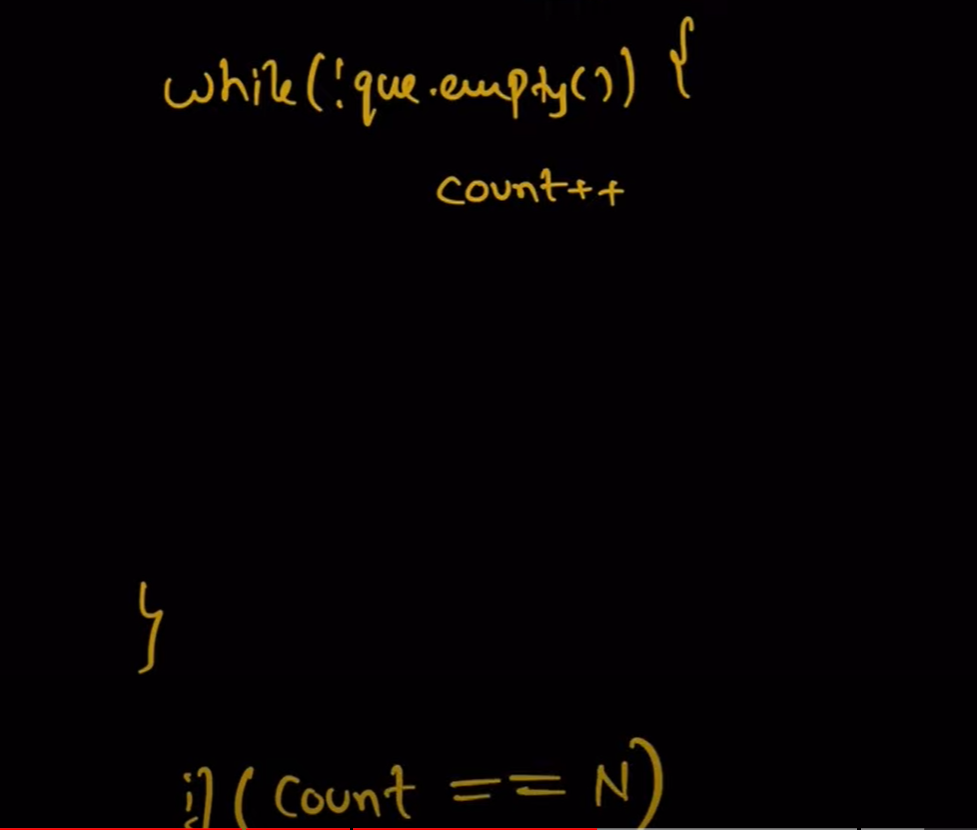 while(!que.empty()) {
count++
}
if(count == N)